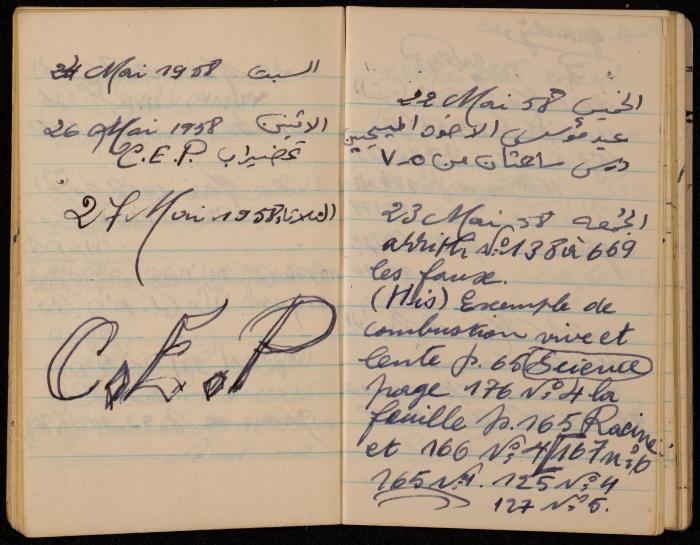 22 Mai 58 الخميس
عيد مؤسس الاخوة المسيحيين
درس ساعتان من ٥-٧
23 Mai 58 الجمعة
arrith N° 138 à 669
les faux.
(His) Exemple de
combustion vive et
lente p. 65 Science
page 176 N° 4 la
feuille p. 165 Racine
et 166 N° 4/167 n° 6
165 N° 1. 125 N° 4
127 N° 5.
24 Mai 1958 السبت
26 Mai 1958 الاثنين
C.E.P.
27 Mai 1958 الثلاثاء
C.E.P